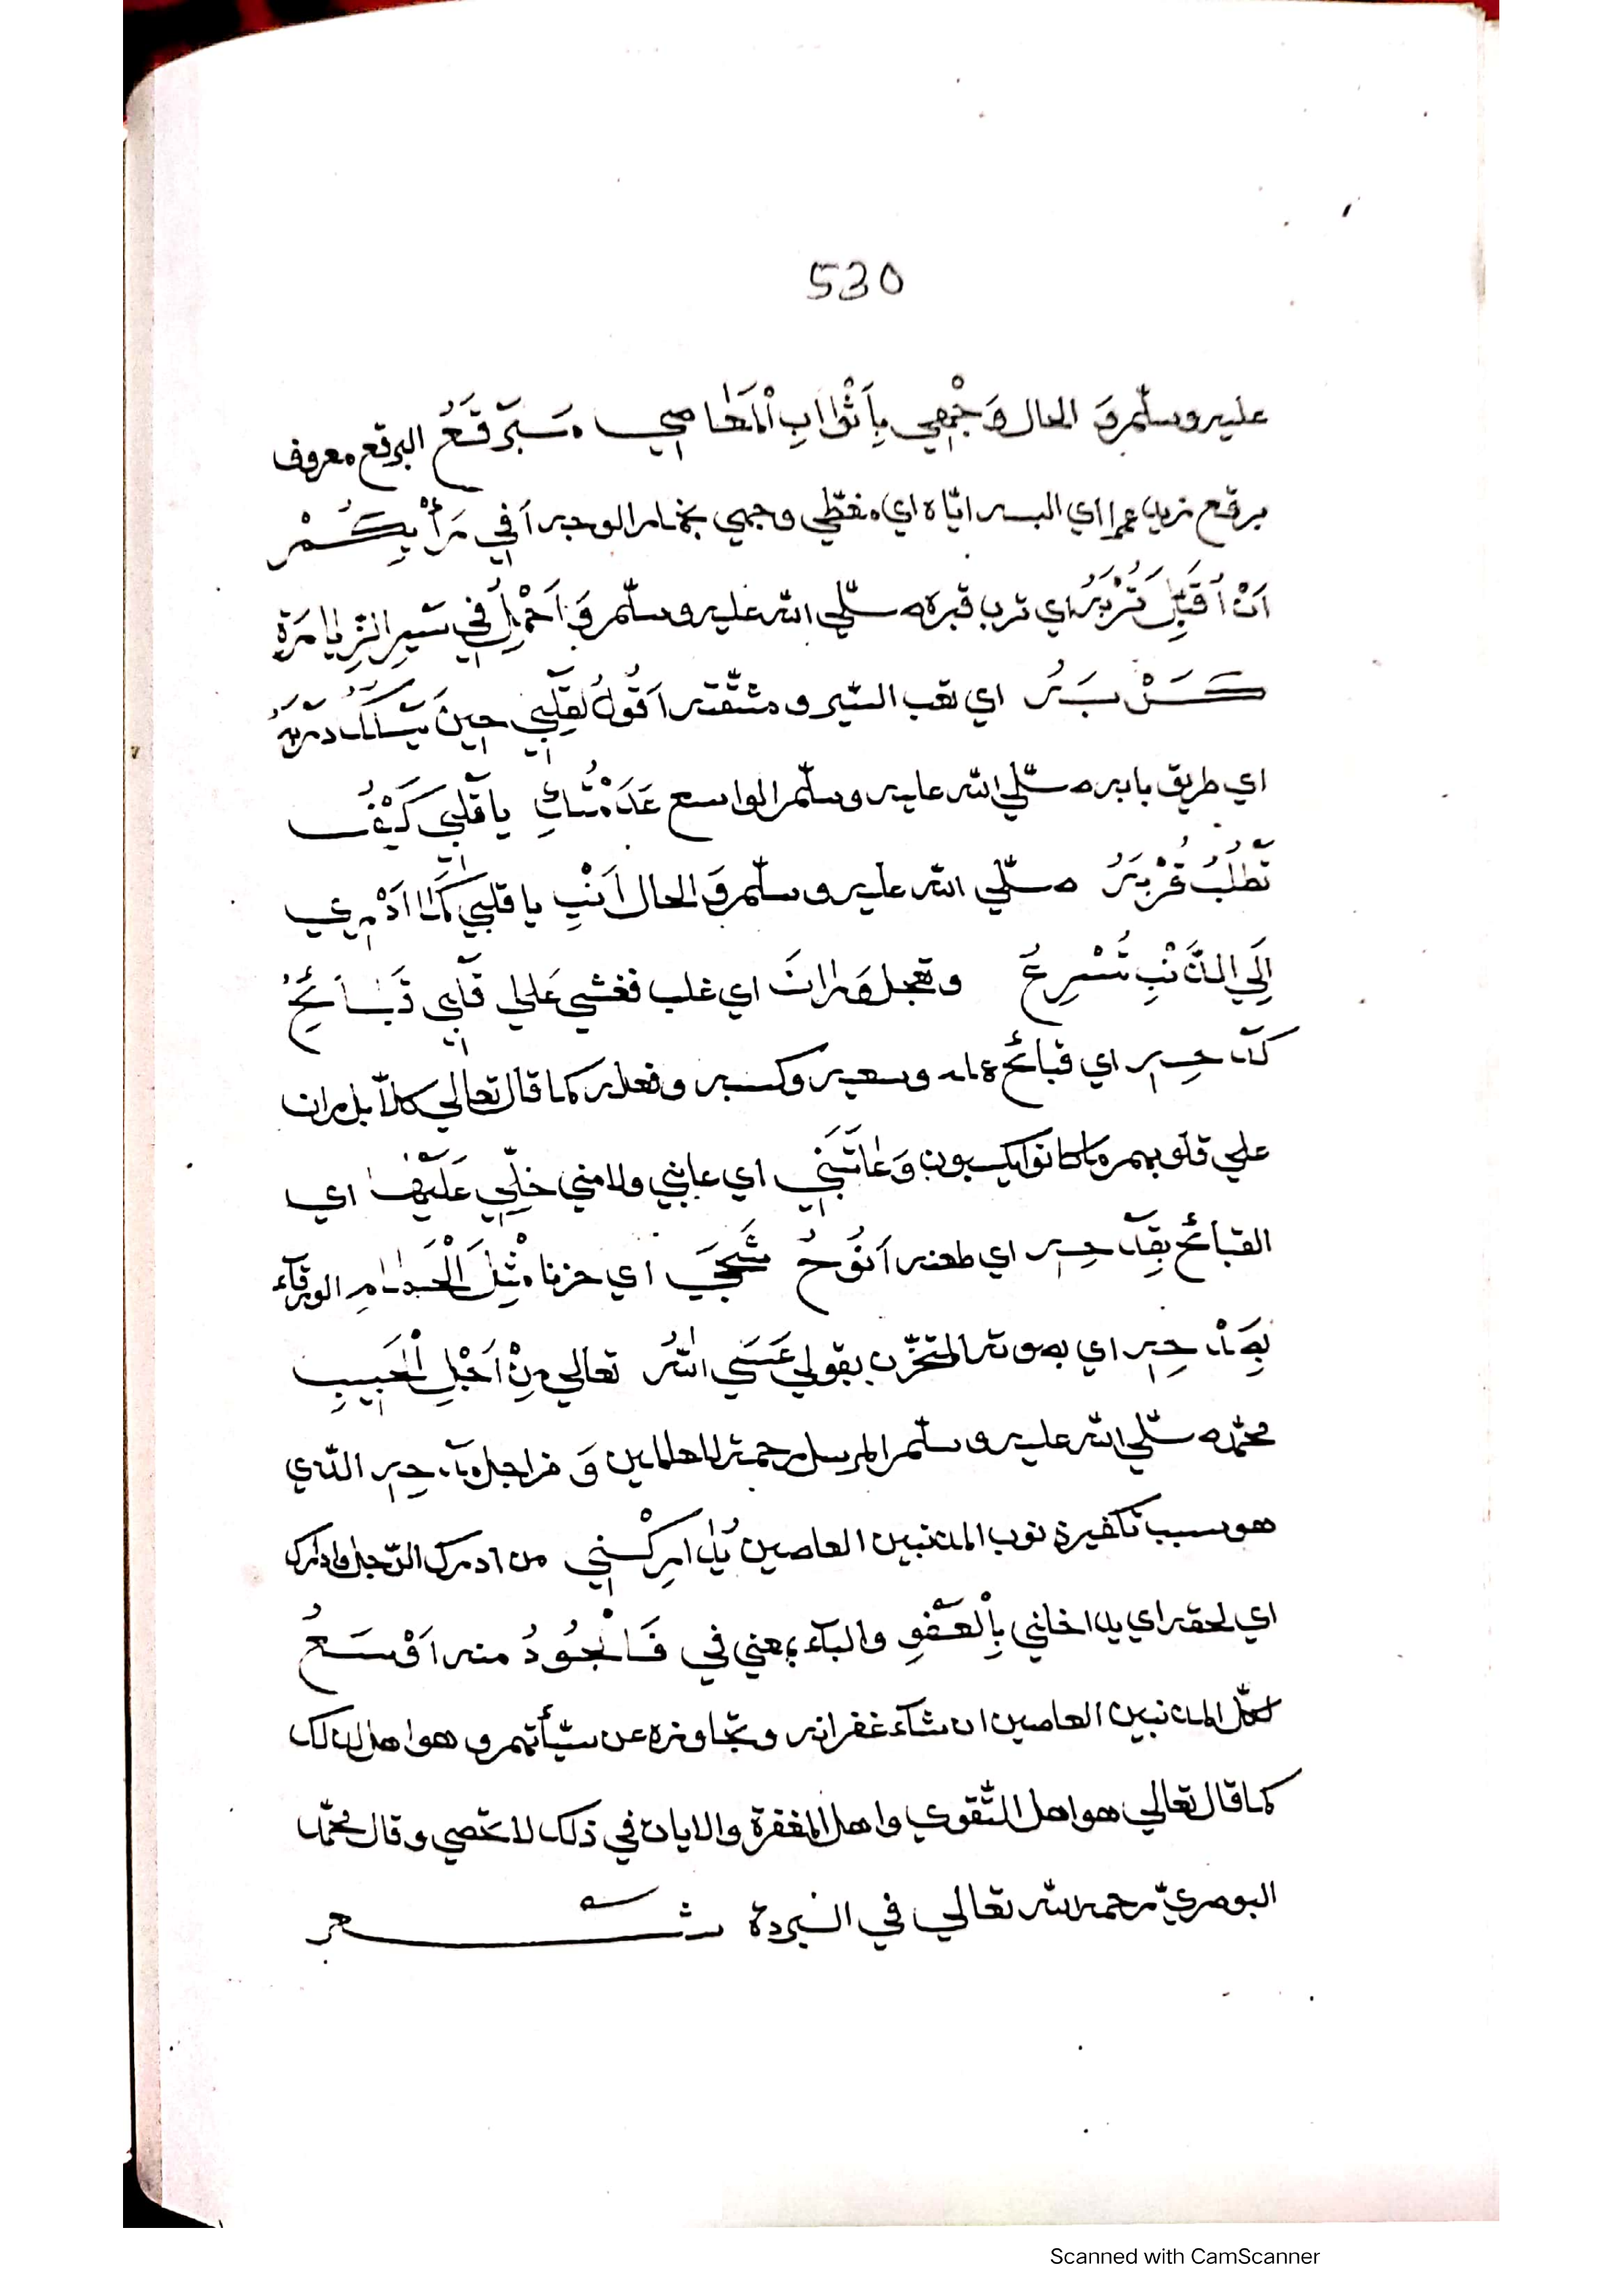 530
عليه وسلّم وَ الحال وَجْهِي بِأَثْوَابِ الْمَعَاصِي مُبَرْقَعُ البرقع معروف
برقع زيد عمرا اي البسه ايّاه اي مغطّي وجهي بخمار الوجه أَفِي رَأْيِكُمْ
اَنْ أُقَبِّلَ تُرْبَهُ اي ترب قبره صلّي الله عليه وسلّم وَ اَحْمِلُ فِي سَيْرِ الزِّيَارَةِ
كَرْبَهُ اي تعب السّير و مشقّته اَقُولُ لِقَلْبِي حِينَ يَسْلُكُ دَرْبَهُ
اي طريق بابه صلّي الله عليه وسلّم الواسع عَدِمْتُكِ يا قَلْبِي كَيْفَ
تَطْلُبُ قُرْبَهُ صلّي الله عليه وسلّم وَ الحال اَنْتِ يا قلبي كَمَا اَدْرِي
اِلَي الذَّنْبِ تُسْرِعُ وتعجل وَرَانَ اي غلب فغشي عَلَي قَلْبِي قَبَائِحُ
كَدْحِهِ اي قبائح عمله وسعيه وكسبه وفعله كما قال تعالي كلّا بل ران
علي قلوبهم ما كانوا يكسبون وَعَاتَبَنِي اي عابني ولامني خِلِّي عَلَيْهَا اي
القبائح بِقَدْحِهِ اي طعنه اَنُوحُ شَجًي اي حزنا مِثْلَ الْحَمَامِ الورقآء
بِصَدْحِهِ اي بصوته المتحزّن بقولي عَسَي اللهُ تعالي مِنْ اَجْلِ الْحَبِيبِ
محمّد صلّي الله عليه وسلّم المرسل رحمة للعالمين وَ من اجل مَدْحِهِ الذي
هو سبب تكفير ذنوب المذنبين العاصين يُدَارِكُنِي من ادرك الرّجل وادّارك
اي لحقه اي يداخلني بِالْعَفْوِ والبآء بمعني في فَالْجُودُ منه اَوْسَعُ
لكلّ المذنبين العاصين ان شآء غفرانه وتجاوزه عن سيّأتهم و هو اهل لذلك
كما قال تعالي هو اهل التّقوي واهل المغفرة والايات في ذلك لا تحصي وقال محمّد
البوصريّ رحمه الله تعالي في البردة شعر
Scanned with CamScanner